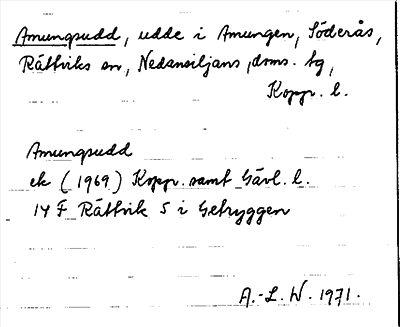 Amungsudd, udde i Amungen, Söderås,
Rättviks sn, Nedansiljans, doms. tg,
Kopp. l.
Amungsudd
ek (1969) Kopp. samt Gävl. l.
14 F Rättvik S i Getryggen
A.-L. W. 1971.